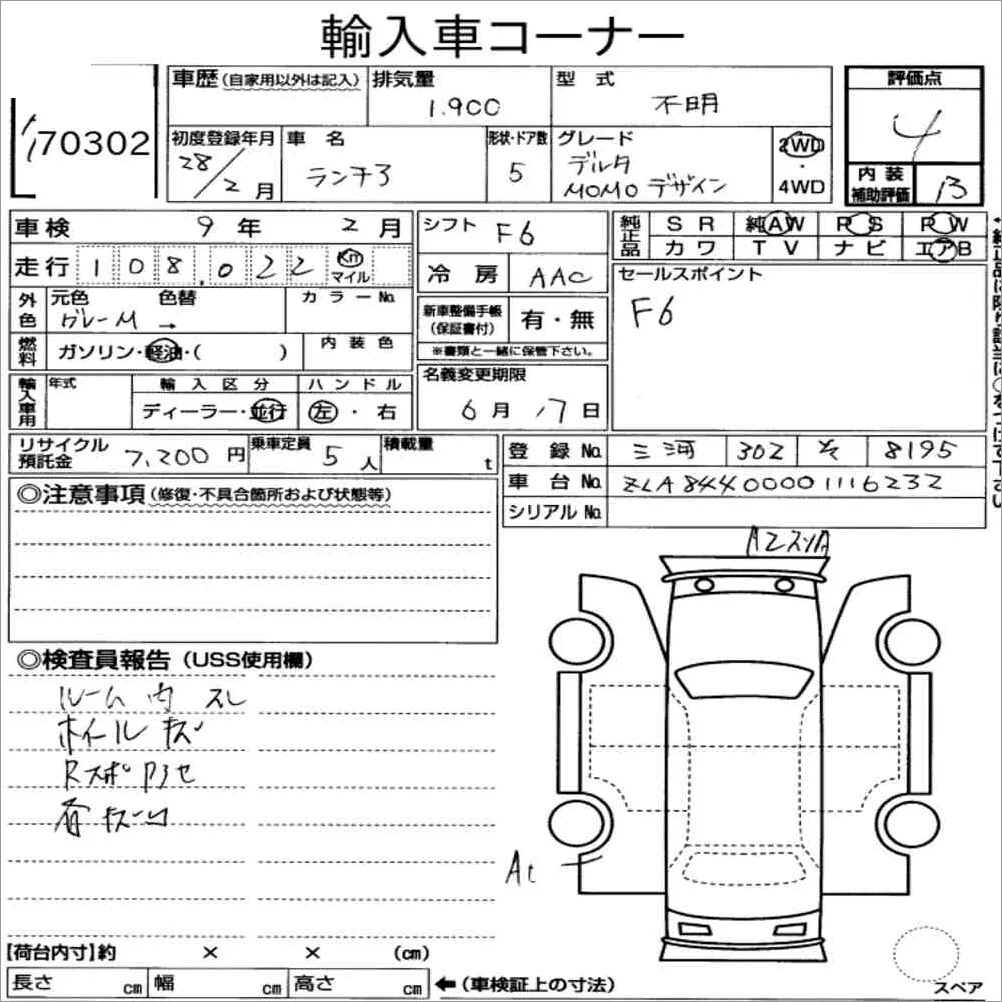 輸入車コーナー
70302
車歴(自家用以外は記入) 排気量 1.900 型式 不明 評価点 4
初度登録年月 28/2月 車名 ランチア 形状・ドア数 5 グレード デルタ MOMOデザイン 2WD・4WD
内装補助評価 B
車検 9年 2月 シフト F6
純正品 SR 純AW PS PW
カワ TV ナビ エアB
走行 108,022 Km マイル 冷房 AAC
セールスポイント
F6
外色 元色 グレーM 色替 → カラーNo.
新車整備手帳(保証書付) 有・無
※書類と一緒に保管下さい。
燃料 ガソリン・軽油・( ) 内装色
輸入車用 年式 輸入区分 ハンドル
ディーラー・並行 左・右
名義変更期限
6月17日
リサイクル預託金 7,200円 乗車定員 5人 積載量 t
登録No. 三河 302 そ 8195
車台No. ZLA84400001116232
シリアルNo.
◎注意事項(修復・不具合箇所および状態等)
◎検査員報告(USS使用欄)
ルーム内スレ
ホイールキズ
Rスポアセ
各キズ凹
A2
A1
【荷台内寸】約 × × (cm)
長さ cm 幅 cm 高さ cm ←(車検証上の寸法)
スペア